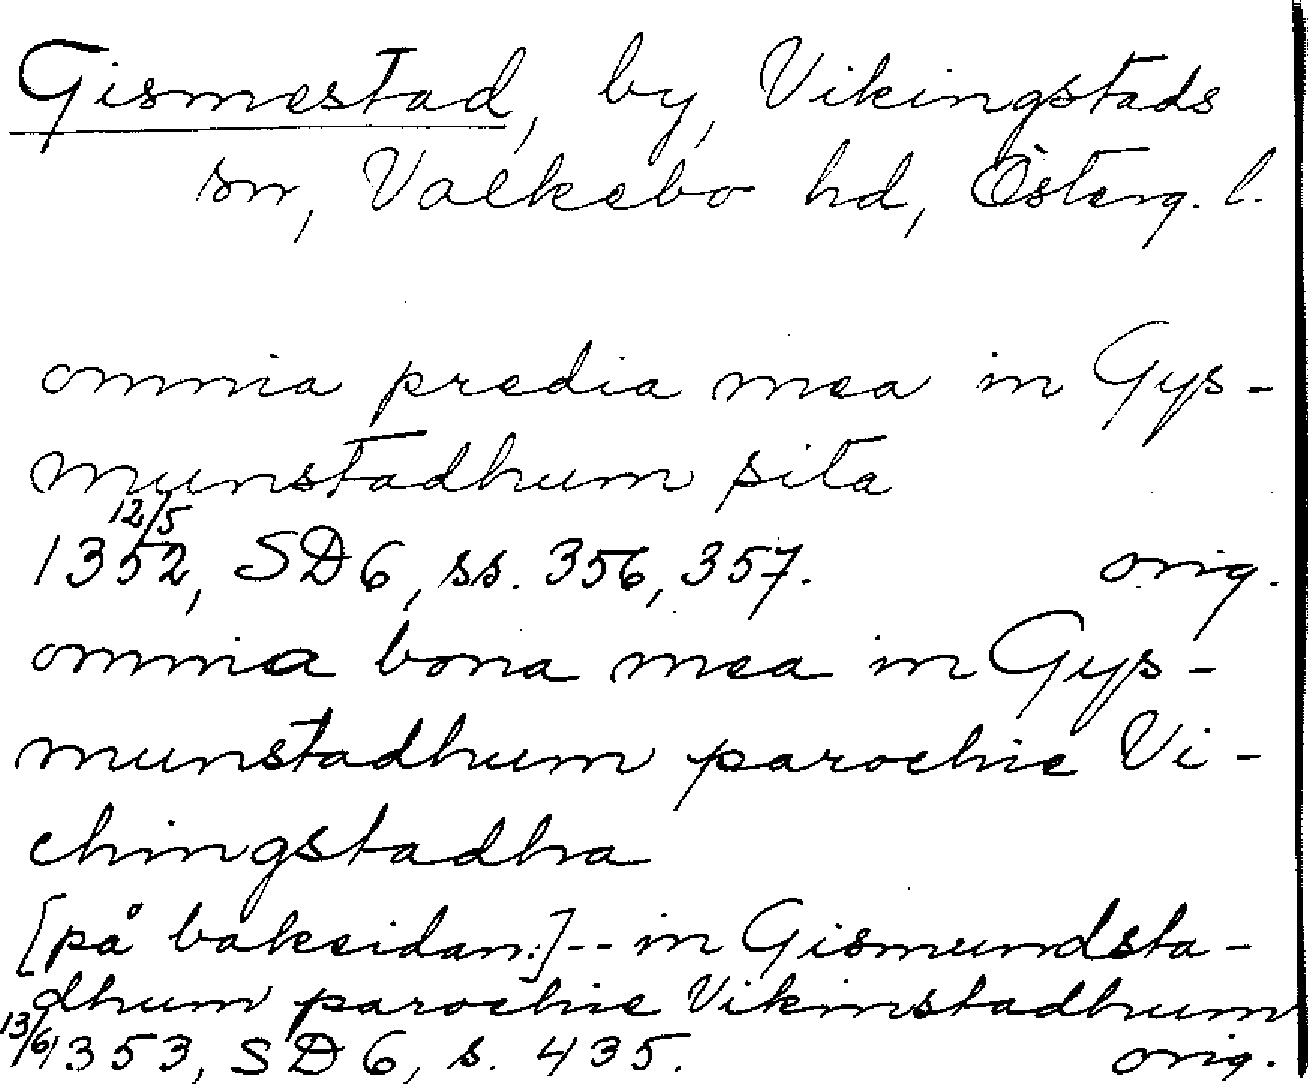 Gismestad, by, Vikingstads
sn, Valkebo hd, Österg. l.
omnia predia mea in Gys-
munstadhum sita
12/5
1352, SD 6, ss. 356, 357. orig.
omnia bona mea in Gys-
munstadhum parochie Vi-
chingstadha
[på baksidan:]-- in Gismundsta-
dhum parochie Vikinstadhum
13/6 1353, SD 6, s. 435. orig.